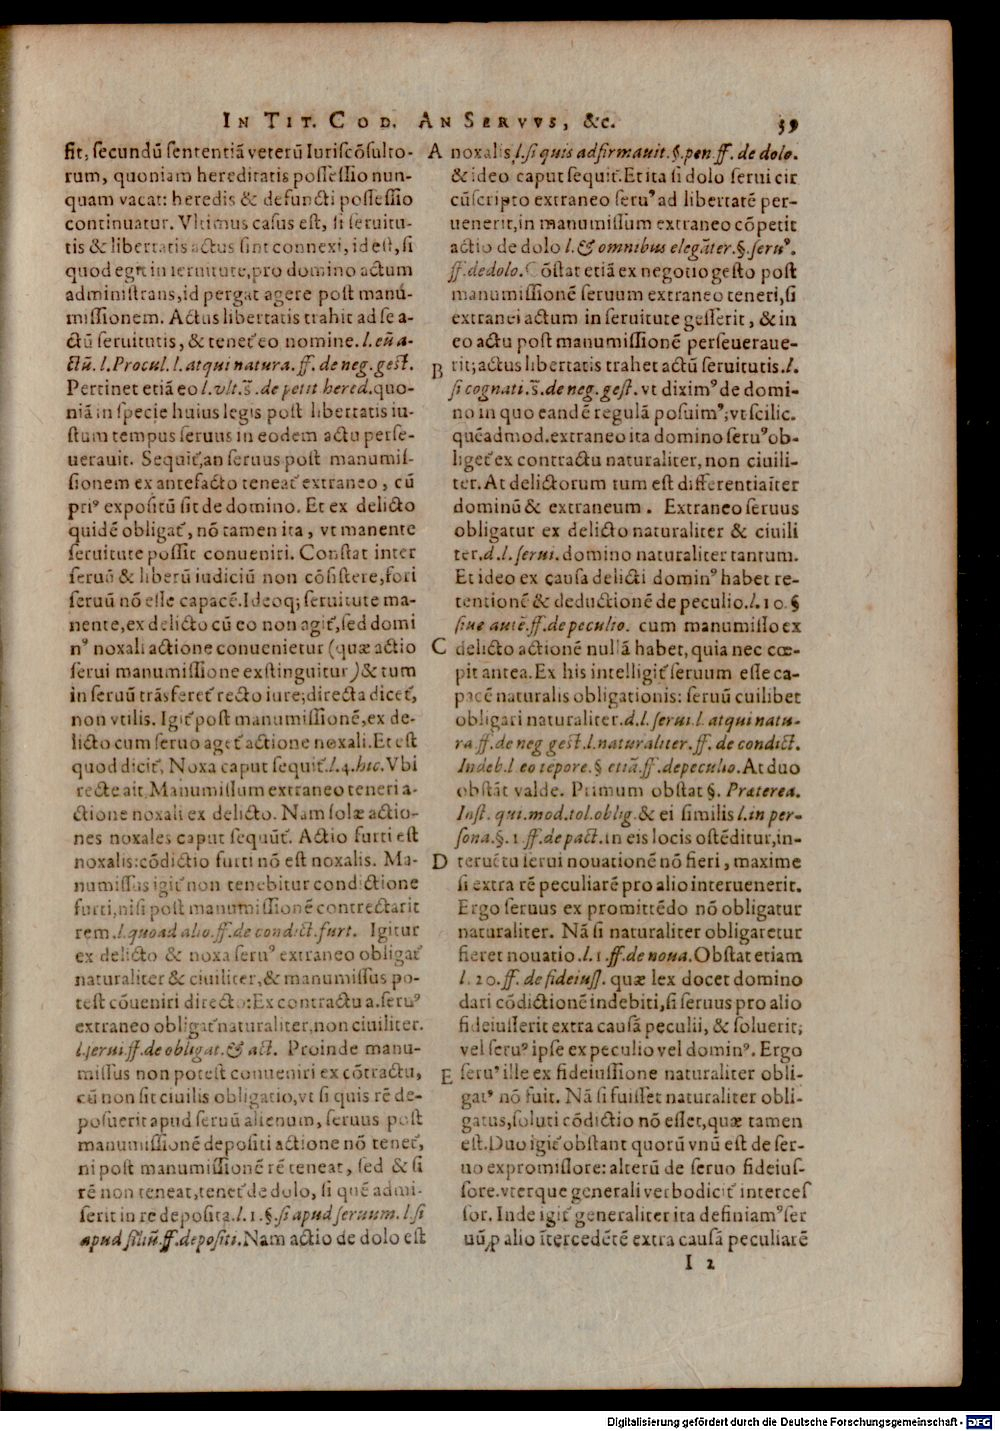 IN TIT. COD. AN SERVVS, &c. 59
fit, secundũ sententiã veterũ Iuriscõsulto-
rum, quoniam hereditatis possessio nun-
quam vacat: heredis & defuncti possessio
continuatur. Vltimus casus est, si seruitu-
tis & libertatis actus sint connexi, id est, si
quod egit in seruitute, pro domino actum
administrans, id pergat agere post manu-
missionem. Actus libertatis trahit ad se a-
ctũ seruitutis, & tenet᷑ eo nomine. l. eũ a-
ctũ. l. Procul. l. atqui natura. ff. de neg. gest.
Pertinet etiã eo l. vlt. s̃. de petit hered. quo-
niã in specie huius legis post libertatis iu-
stum tempus seruus in eodem actu perse-
uerauit. Sequit᷑, an seruus post manumis-
sionem ex antefacto teneat᷑ extraneo, cũ
priꝰ expositũ sit de domino. Et ex delicto
quidẽ obligat᷑, nõ tamen ita, vt manente
seruitute possit conueniri. Constat inter
seruũ & liberũ iudiciũ non cõsistere, fori
seruũ nõ esse capacẽ. Ideoq; seruitute ma-
nente, ex delicto cũ eo non agit᷑, sed domi
nꝰ noxali actione conuenietur (quæ actio
serui manumissione exstinguitur) & tum
in seruũ trãsferet᷑ recto iure; directa dicet᷑,
non vtilis. Igit᷑ post manumissionẽ, ex de-
licto cum seruo aget᷑ actione noxali. Et est
quod dicit᷑, Noxa caput sequit᷑. l. 4. hic. Vbi
recte ait, Manumissum extraneo teneri a-
ctione noxali ex delicto. Nam solæ actio-
nes noxales caput sequũt᷑. Actio furti est
noxalis: cõdictio furti nõ est noxalis. Ma-
numissus igit᷑ non tenebitur condictione
furti, nisi post manumissionẽ contrectarit
rem. l. quoad alio. ff. de condict. furt. Igitur
ex delicto & noxa seruꝰ extraneo obligat᷑
naturaliter & ciuiliter, & manumissus po-
test cõueniri directo: Ex contractu a. seruꝰ
extraneo obligat᷑ naturaliter, non ciuiliter.
l. serui. ff. de obligat. & act. Proinde manu-
missus non potest conueniri ex cõtractu,
cũ non sit ciuilis obligatio, vt si quis rẽ de-
posuerit apud seruũ alienum, seruus post
manumissionẽ depositi actione nõ tenet᷑,
ni post manumissionẽ rẽ teneat, sed & si
rẽ non teneat, tenet᷑ de dolo, si quẽ admi-
serit in re deposita. l. 1. §. si apud seruum. l. si
apud filiũ. ff. depositi. Nam actio de dolo est
A noxalis, l. si quis adfirmauit. §. pen ff. de dolo.
& ideo caput sequit᷑. Et ita si dolo serui cir
cũscripto extraneo seruꝰ ad libertatẽ per-
uenerit, in manumissum extraneo cõpetit
actio de dolo l. & omnibus elegãter. §. seruꝰ.
ff. de dolo. Cõstat etiã ex negotio gesto post
manumissionẽ seruum extraneo teneri, si
extranei actum in seruitute gesserit, & in
eo actu post manumissionẽ perseueraue-
B rit; actus libertatis trahet actũ seruitutis. l.
si cognati. s̃. de neg. gest. vt diximꝰ de domi-
no in quo eandẽ regulã posuimꝰ; vt scilic.
quẽadmod. extraneo ita domino seruꝰ ob-
liget᷑ ex contractu naturaliter, non ciuili-
ter. At delictorum tum est differentia ĩter
dominũ & extraneum. Extraneo seruus
obligatur ex delicto naturaliter & ciuili
ter. d. l. serui. domino naturaliter tantum.
Et ideo ex causa delicti dominꝰ habet re-
tentionẽ & deductionẽ de peculio. l. 10. §
siue autẽ. ff. de peculio. cum manumisso ex
C delicto actionẽ nullã habet, quia nec cœ-
pit antea. Ex his intelligit᷑ seruum esse ca-
pacẽ naturalis obligationis: seruũ cuilibet
obligari naturaliter. d. l. serui. l. atqui natu-
ra ff. de neg gest. l. naturaliter. ff. de condict.
Indeb. l. eo tẽpore. § etiã. ff. de peculio. At duo
obstãt valde. Primum obstat §. Præterea.
Inst. qui. mod. tol. oblig. & ei similis l. in per-
sona. §. 1 ff. de pact. in eis locis ostẽditur, in-
D teruẽtu serui nouationẽ nõ fieri, maxime
si extra rẽ peculiarẽ pro alio interuenerit.
Ergo seruus ex promittẽdo nõ obligatur
naturaliter. Nã si naturaliter obligaretur
fieret nouatio. l. 1. ff. de noua. Obstat etiam
l. 20. ff. de fideiuss. quæ lex docet domino
dari cõdictionẽ indebiti, si seruus pro alio
fideiusserit extra causã peculii, & soluerit;
vel seruꝰ ipse ex peculio vel dominꝰ. Ergo
E seruꝰ ille ex fideiussione naturaliter obli-
gatꝰ nõ fuit. Nã si fuisset naturaliter obli-
gatus, soluti cõdictio nõ esset, quæ tamen
est. Duo igit᷑ obstant quorũ vnũ est de ser-
uo expromissore: alterũ de seruo fideius-
sore. vterque generali verbo dicit᷑ interces
sor. Inde igit᷑ generaliter ita definiamꝰ ser
uũ, ꝓ alio ĩtercedẽtẽ extra causã peculiarẽ
I 2
Digitalisierung gefördert durch die Deutsche Forschungsgemeinschaft - DFG